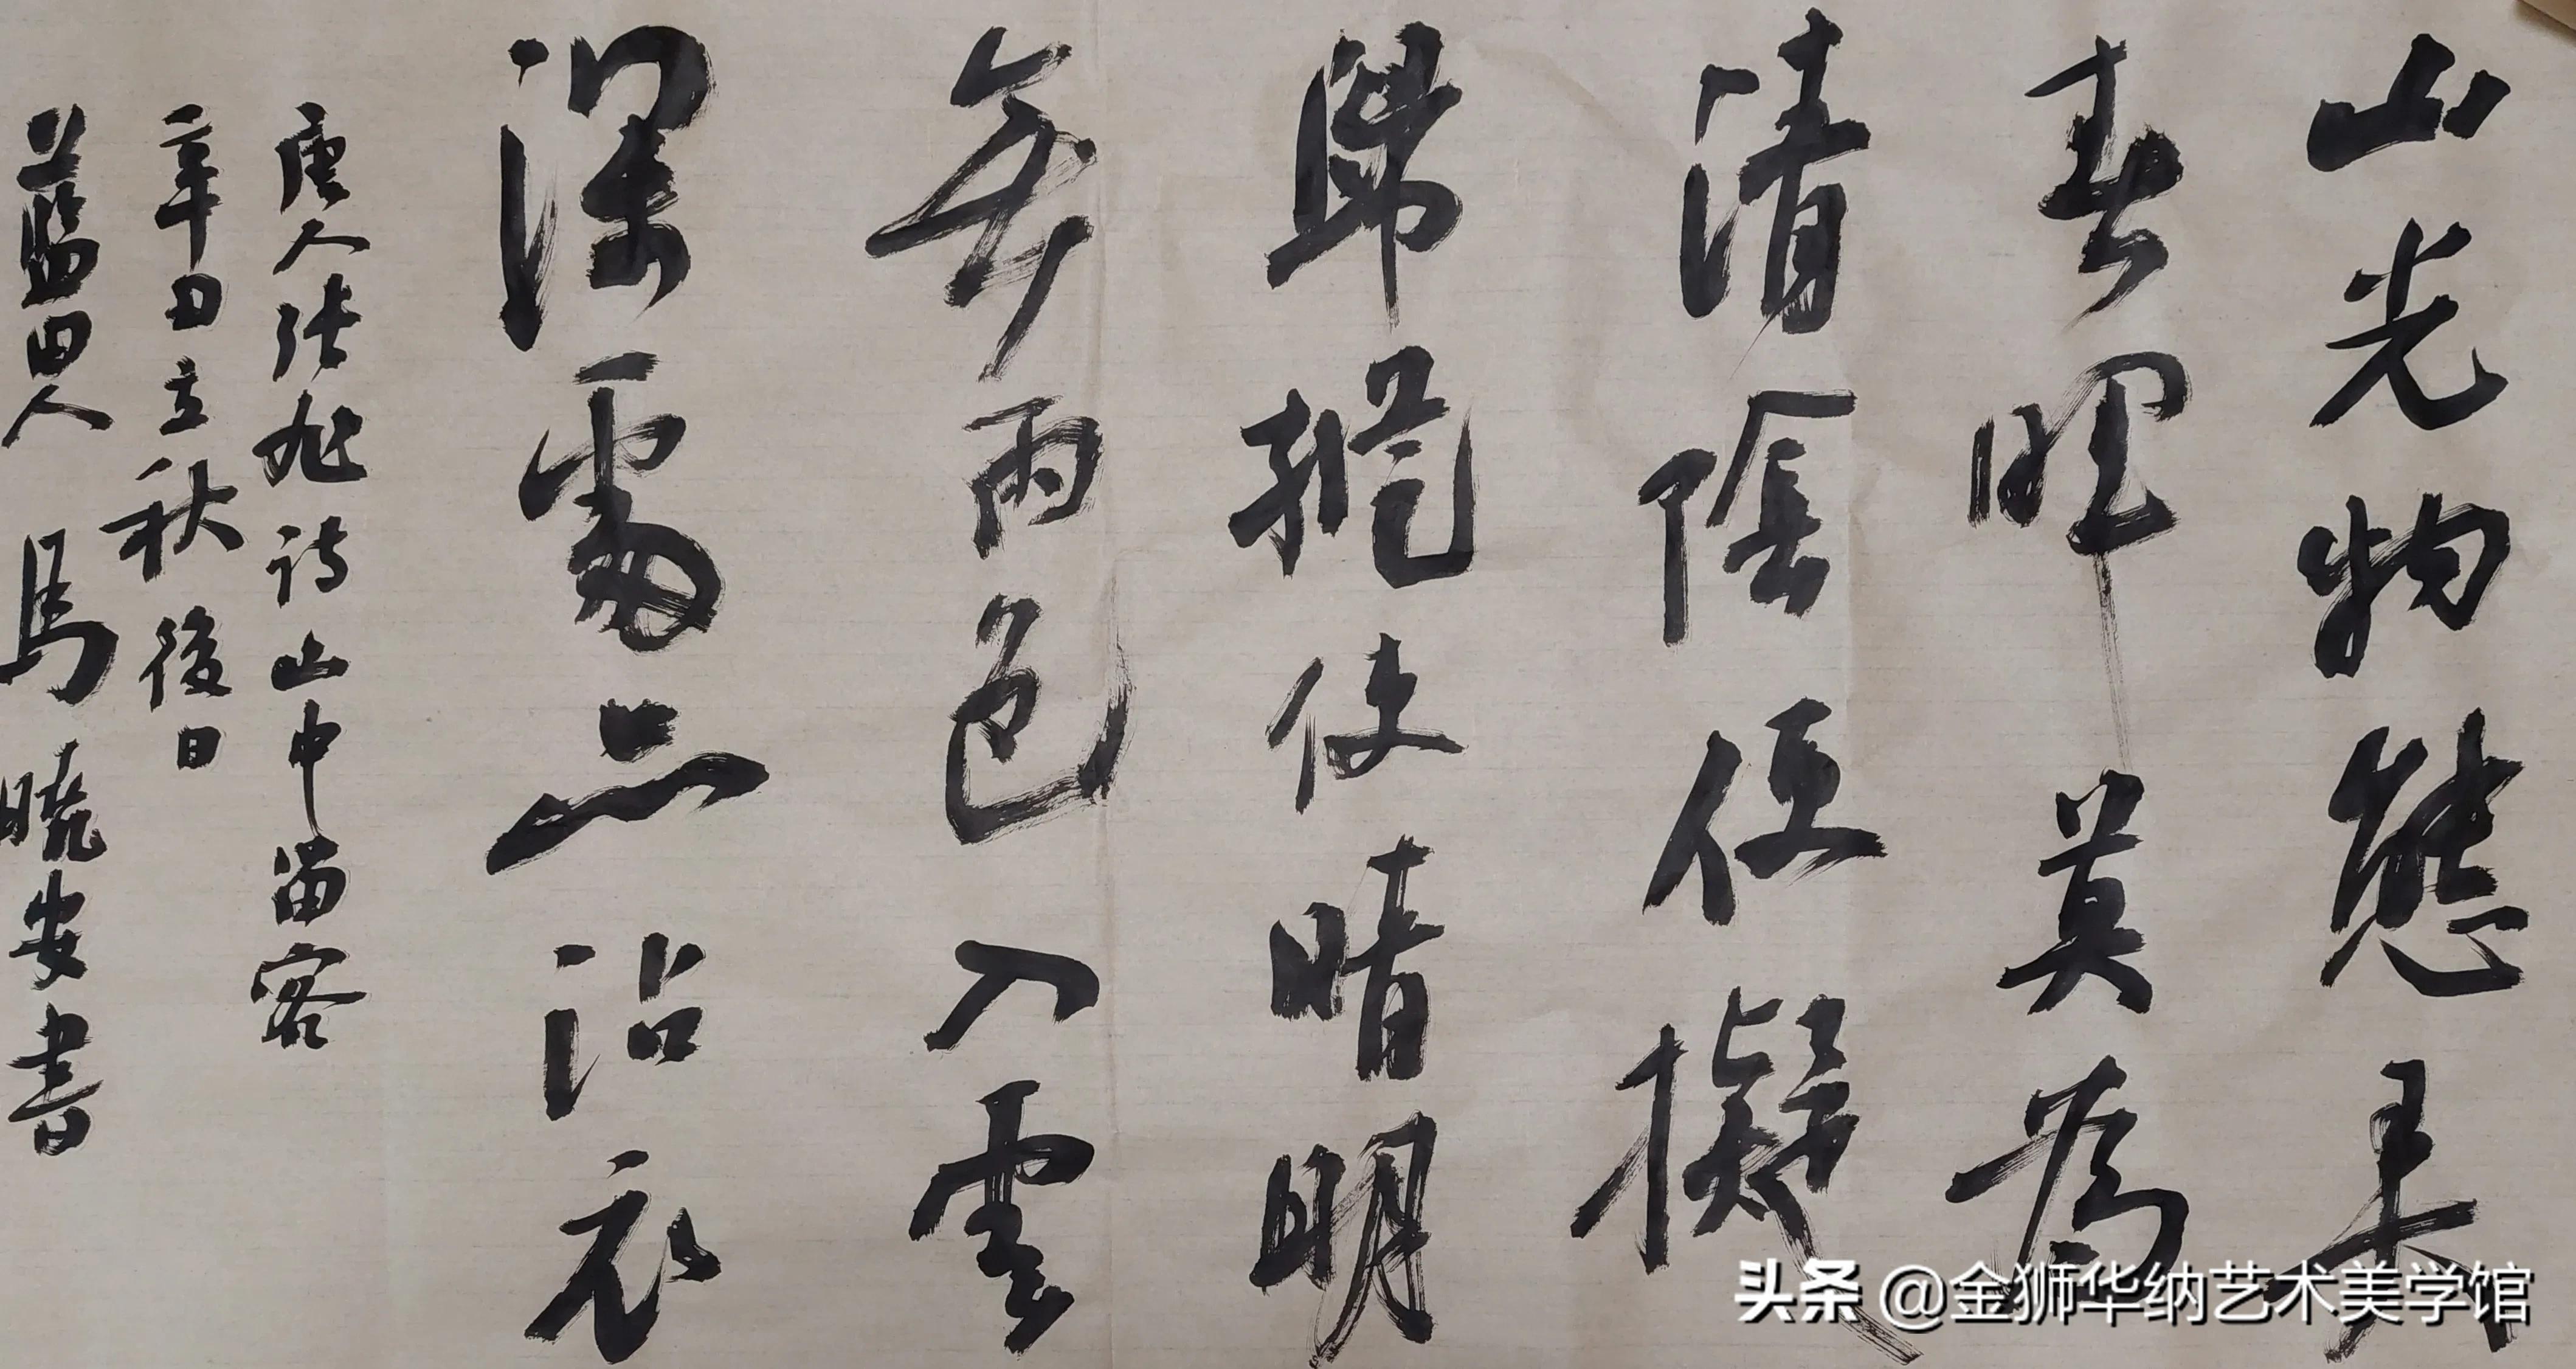 山光物態弄
春暉莫為
清陰便擬
歸縱使晴明
無雨色入雲
深處亦沾衣
唐人張旭詩山中留客
辛丑立秋後日
藍田人馬曉安書
头条 @金狮华纳艺术美学馆